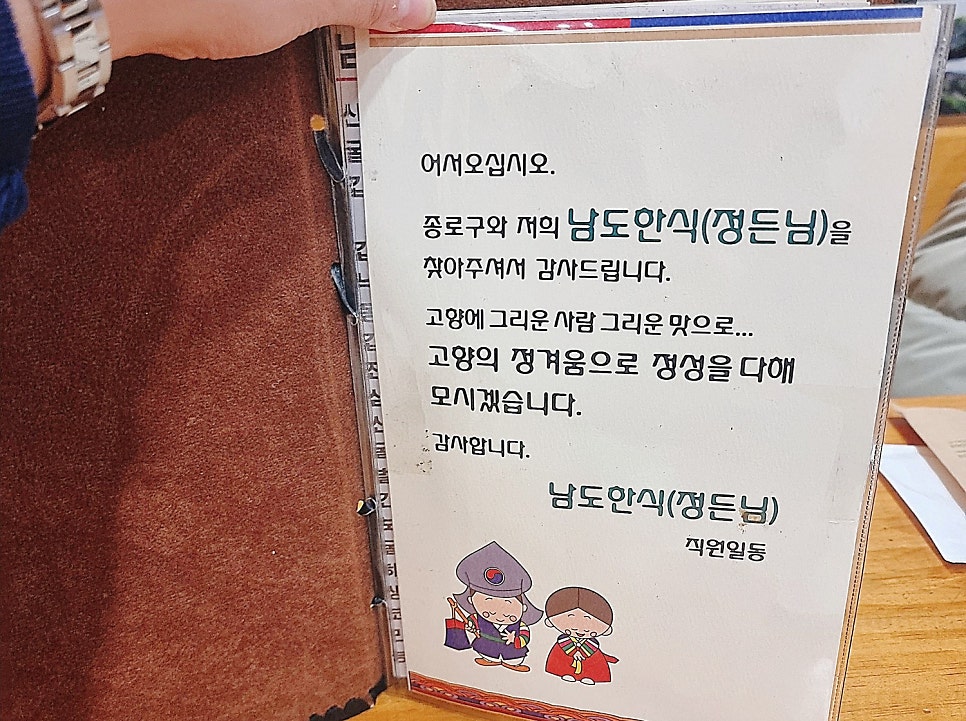 어서오십시오.
종로구와 저희 남도한식(정든님)을
찾아주셔서 감사드립니다.
고향에 그리운 사람 그리운 맛으로...
고향의 정겨움으로 정성을 다해
모시겠습니다.
감사합니다.
남도한식(정든님)
직원일동